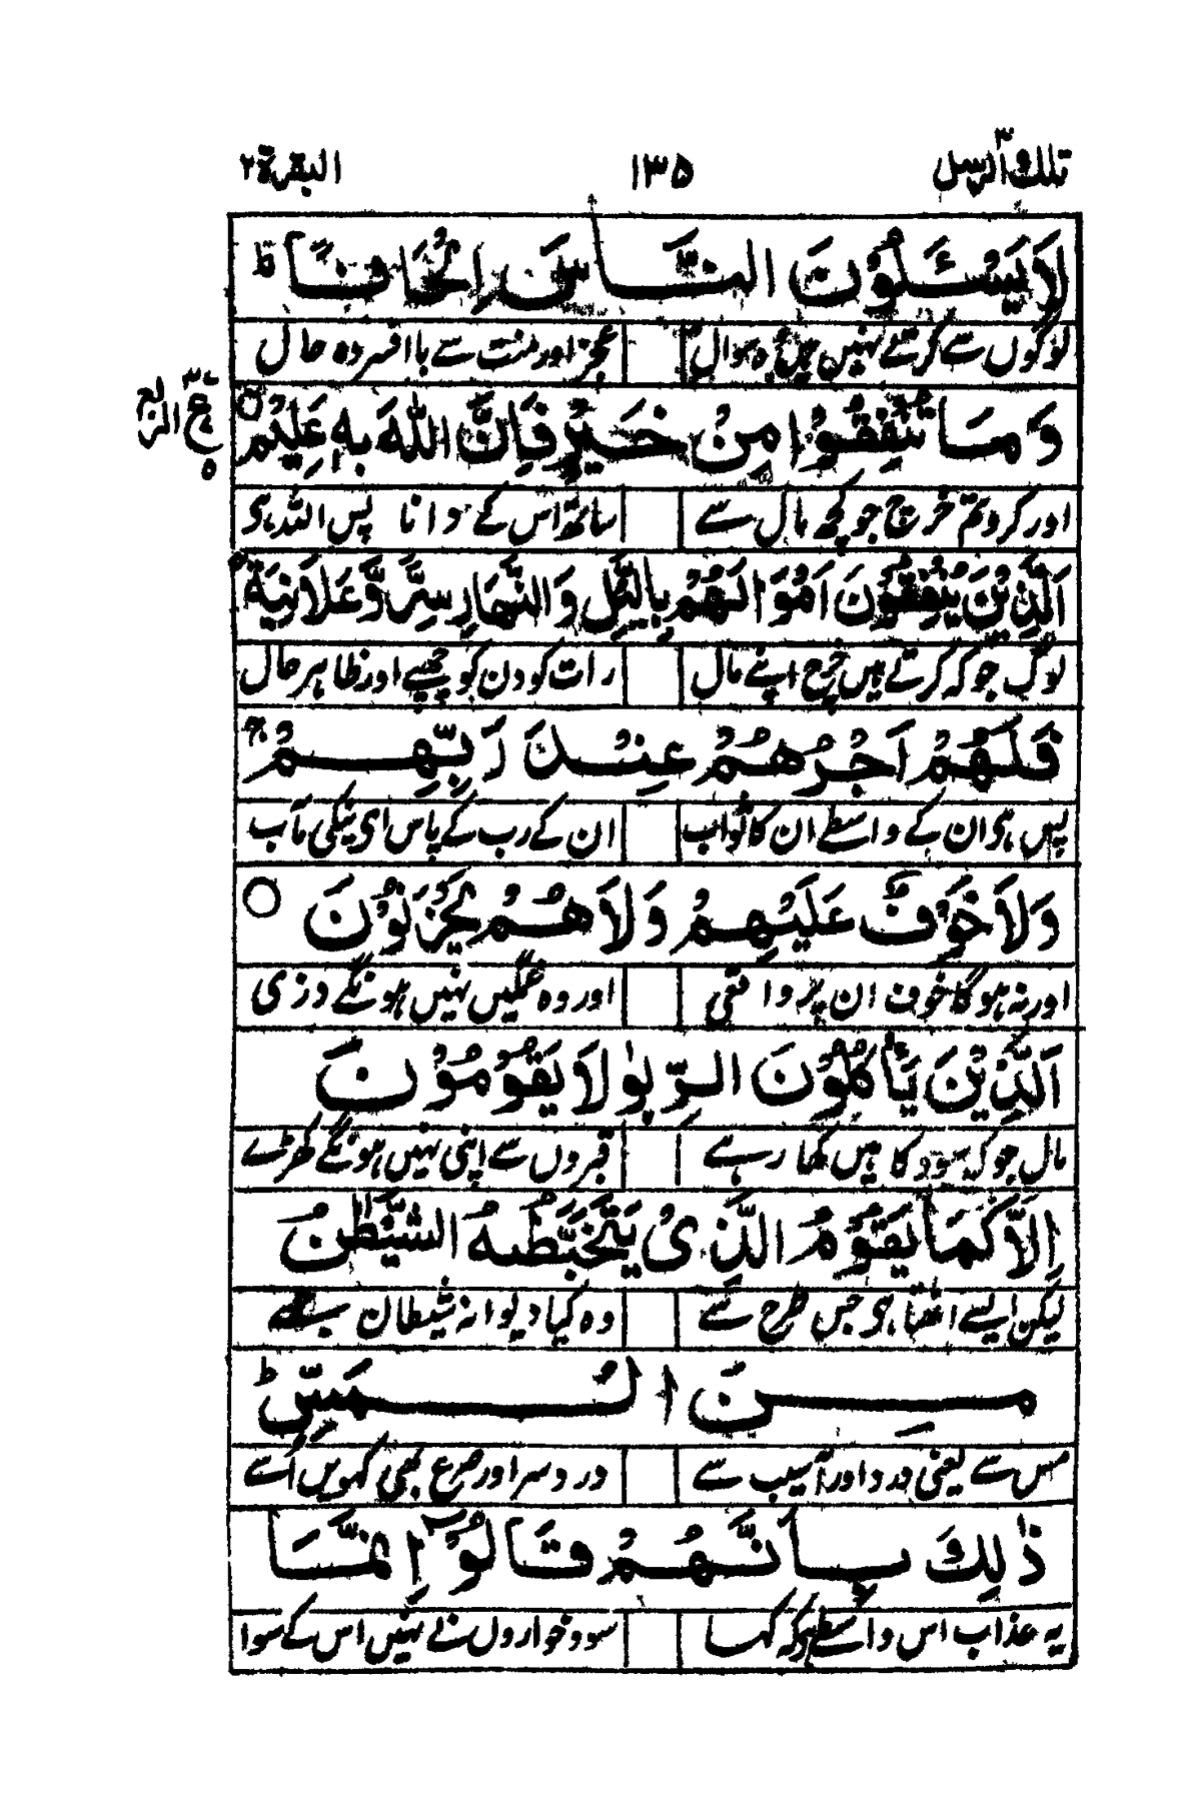 تلك الرسل ۳ ۱۳۵ البقرة ۲
لَا يَسْئَلُوْنَ النَّاسَ اِلْحَافًا ط
لوگوں سے کرتے نہیں ہیں وہ سوال عجز اور منت سے با افسردہ حال
وَمَا تُنْفِقُوْا مِنْ خَيْرٍ فَاِنَّ اللّٰهَ بِهٖ عَلِيْمٌ ○
ع الربع ۵
اور کرو تم خرچ جو کچھ مال سے ساتھ اس کے دانا پس اللہ ہی
اَلَّذِيْنَ يُنْفِقُوْنَ اَمْوَالَهُمْ بِالَّيْلِ وَالنَّهَارِ سِرًّا وَّعَلَانِيَةً
لوگ جو کہ کرتے ہیں خرچ اپنے مال رات کو دن کو چھپے اور ظاہر حال
فَلَهُمْ اَجْرُهُمْ عِنْدَ رَبِّهِمْ ج
پس ہی ان کے واسطے ان کا ثواب ان کے رب کے پاس ای نیکی مآب
وَلَا خَوْفٌ عَلَيْهِمْ وَلَا هُمْ يَحْزَنُوْنَ ○
اور نہ ہوگا خوف ان پر واقعی اور وہ غمگیں نہیں ہونگے وزی
اَلَّذِيْنَ يَاْكُلُوْنَ الرِّبٰوا لَا يَقُوْمُوْنَ
مال جو کہ سود کا ہیں کھا رہے قبروں سے اپنی نہیں ہونگے کھڑے
اِلَّا كَمَا يَقُوْمُ الَّذِىْ يَتَخَبَّطُهُ الشَّيْطٰنُ
لیکن ایسے اٹھتا ہی جس طرح سے وہ کیا دیوانہ شیطان
مِنَ الْمَسِّ ط
مس سے یعنی درد اور آسیب سے درد سر اور صرع بھی کہویں اُسے
ذٰلِكَ بِاَنَّهُمْ قَالُوْا اِنَّمَا
یہ عذاب اس واسطے ہے کہ کہا سود خواروں نے نہیں اس کے سوا